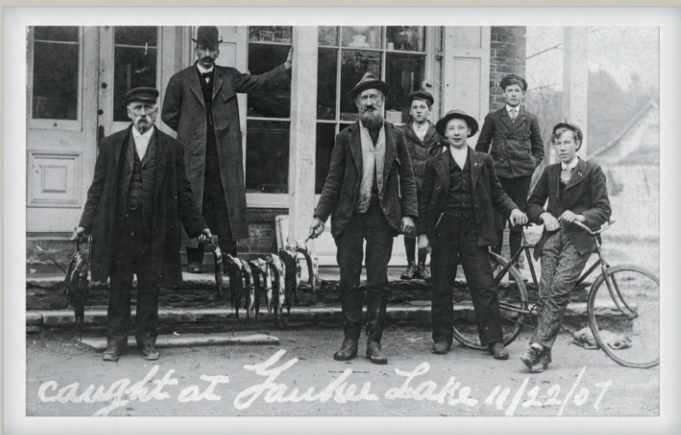 caught at Yankee Lake 11/22/07